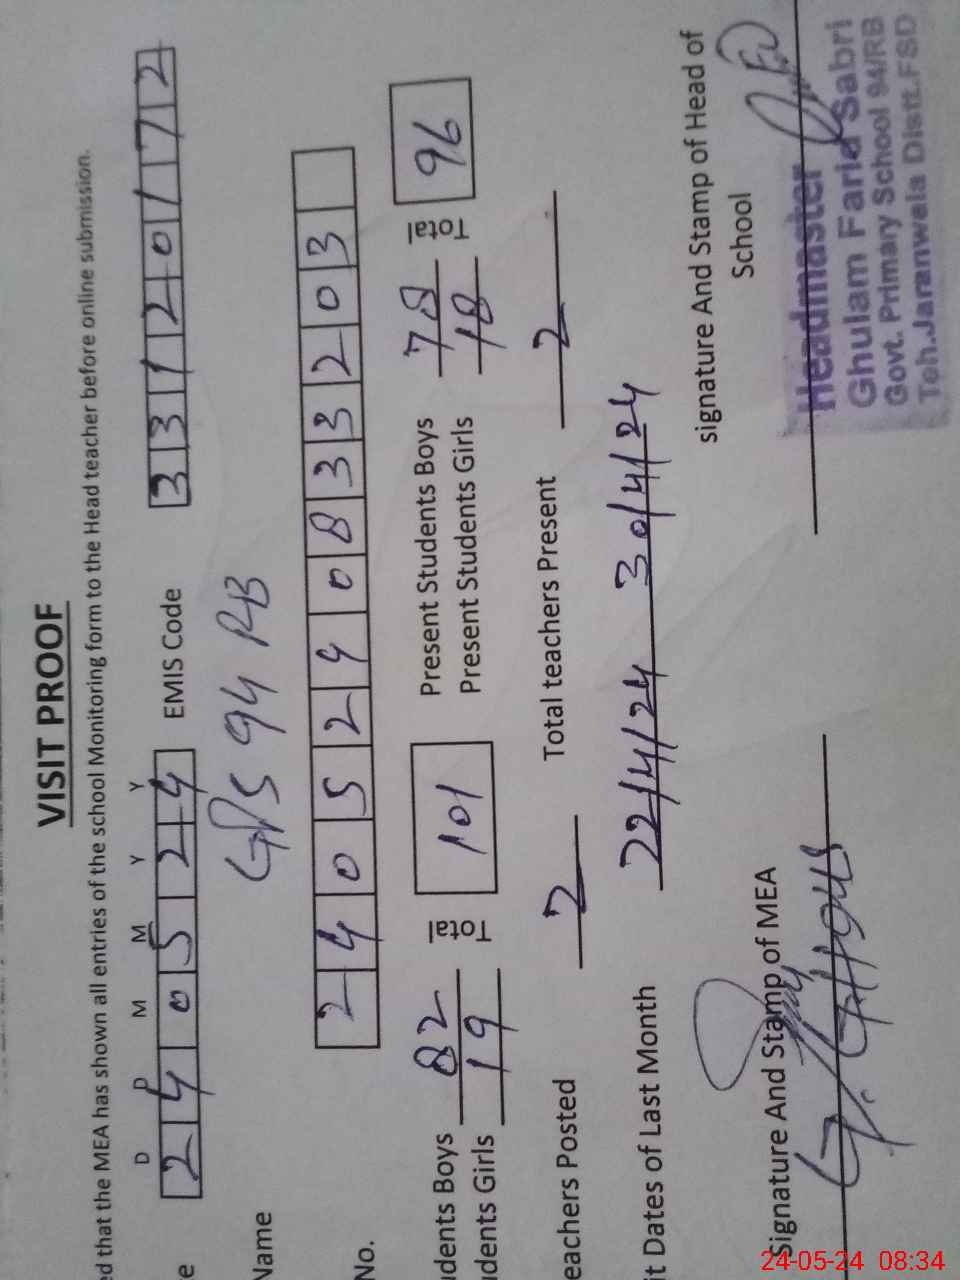 VISIT PROOF
ed that the MEA has shown all entries of the school Monitoring form to the Head teacher before online submission.
D D M M Y Y
e 240524 EMIS Code 33120172
Name GPS 94 RB
No. 2405240833203
udents Boys 82 Total 101 Present Students Boys 78 Total 96
udents Girls 19 Present Students Girls 18
eachers Posted 2 Total teachers Present 2
it Dates of Last Month 22/4/24 30/4/24
Signature And Stamp of MEA signature And Stamp of Head of School
Headmaster
Ghulam Farid Sabri
Govt. Primary School 94/RB
Teh.Jaranwala Distt.FSD
24-05-24 08:34